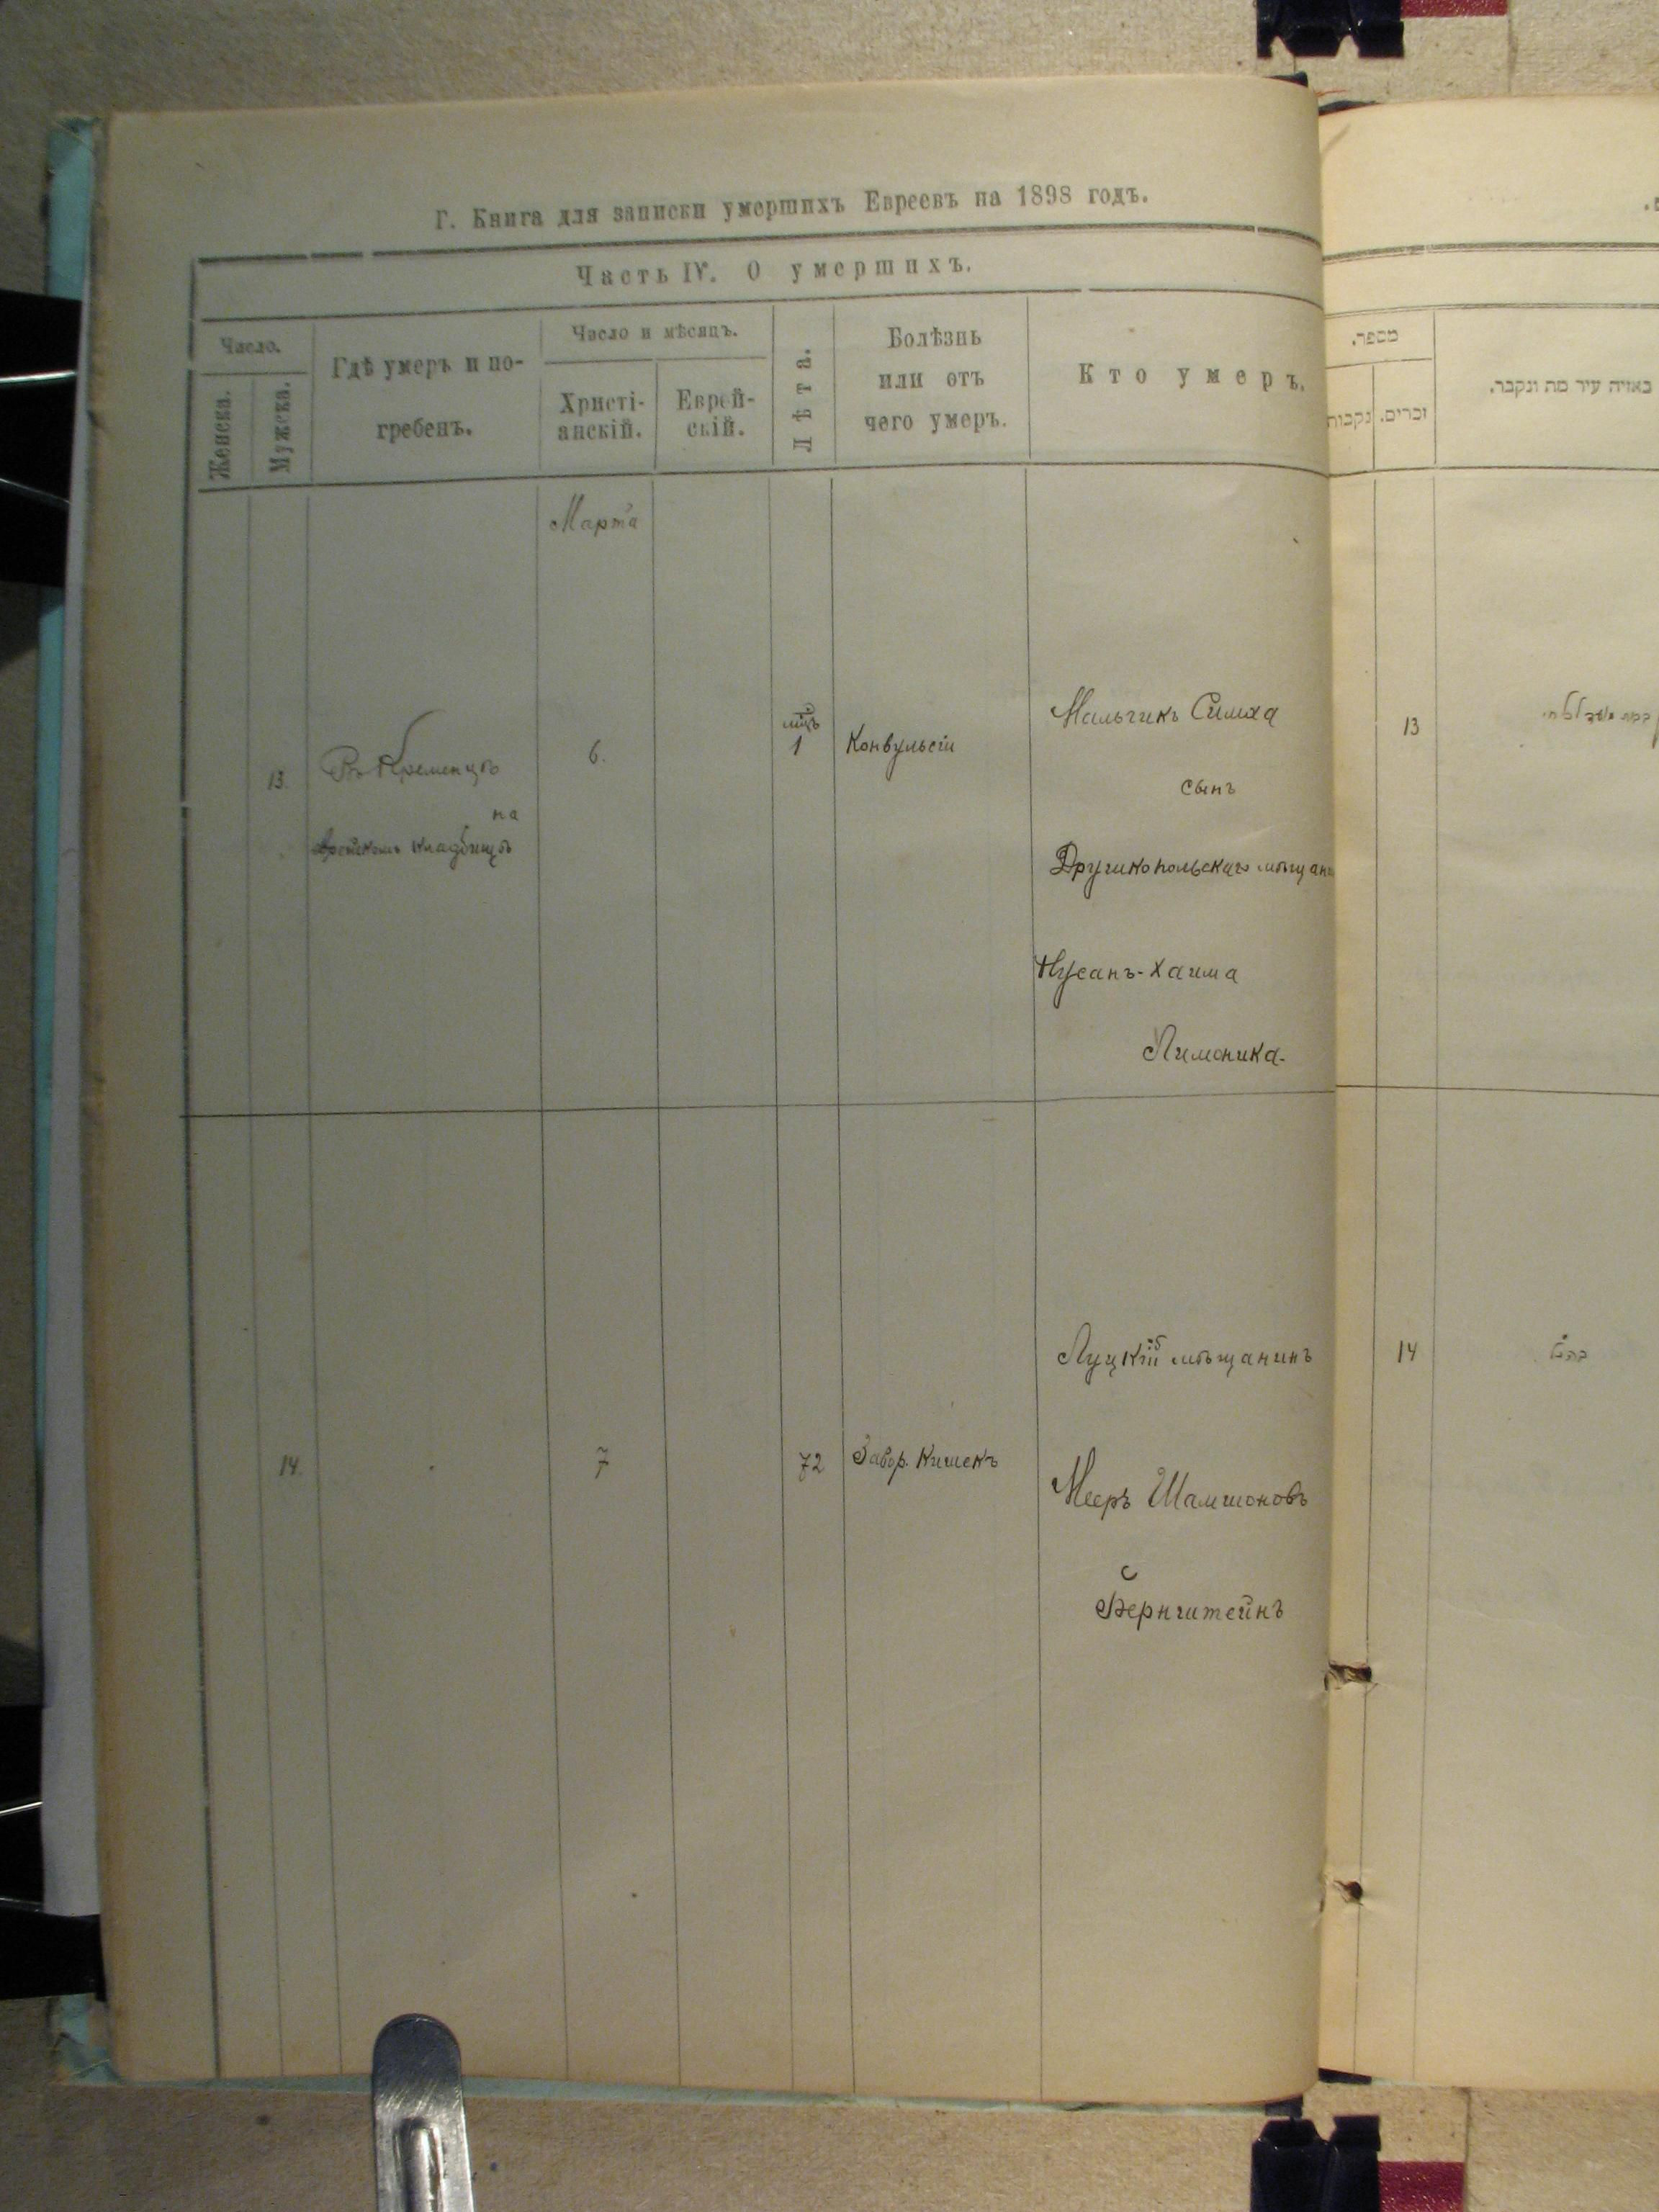 Г. Книга для записки умершихъ Евреевъ на 1898 годъ.
Часть IV. О умершихъ.
Число.
Женска.
Мужеска.
Гдѣ умеръ и по-
гребенъ.
Число и мѣсяцъ.
Христі-
анскій.
Еврей-
скій.
Лѣта.
Болѣзнь
или отъ
чего умеръ.
Кто умеръ.
מספר.
נקבות
זכרים.
באיזה עיר מת ונקבר.
Марта
13.
Въ Кременцѣ
на
еврейскомъ кладбищѣ
6.
1
Конвульсіи
Мальчикъ Симха
сынъ
Дружкопольскаго мѣщан
Нусанъ-Хаима
Лимоника.
13
14.
7
72
Завор. Кишекъ
Луцкій мѣщанинъ
Мееръ Шамшоновъ
Бернштейнъ
14